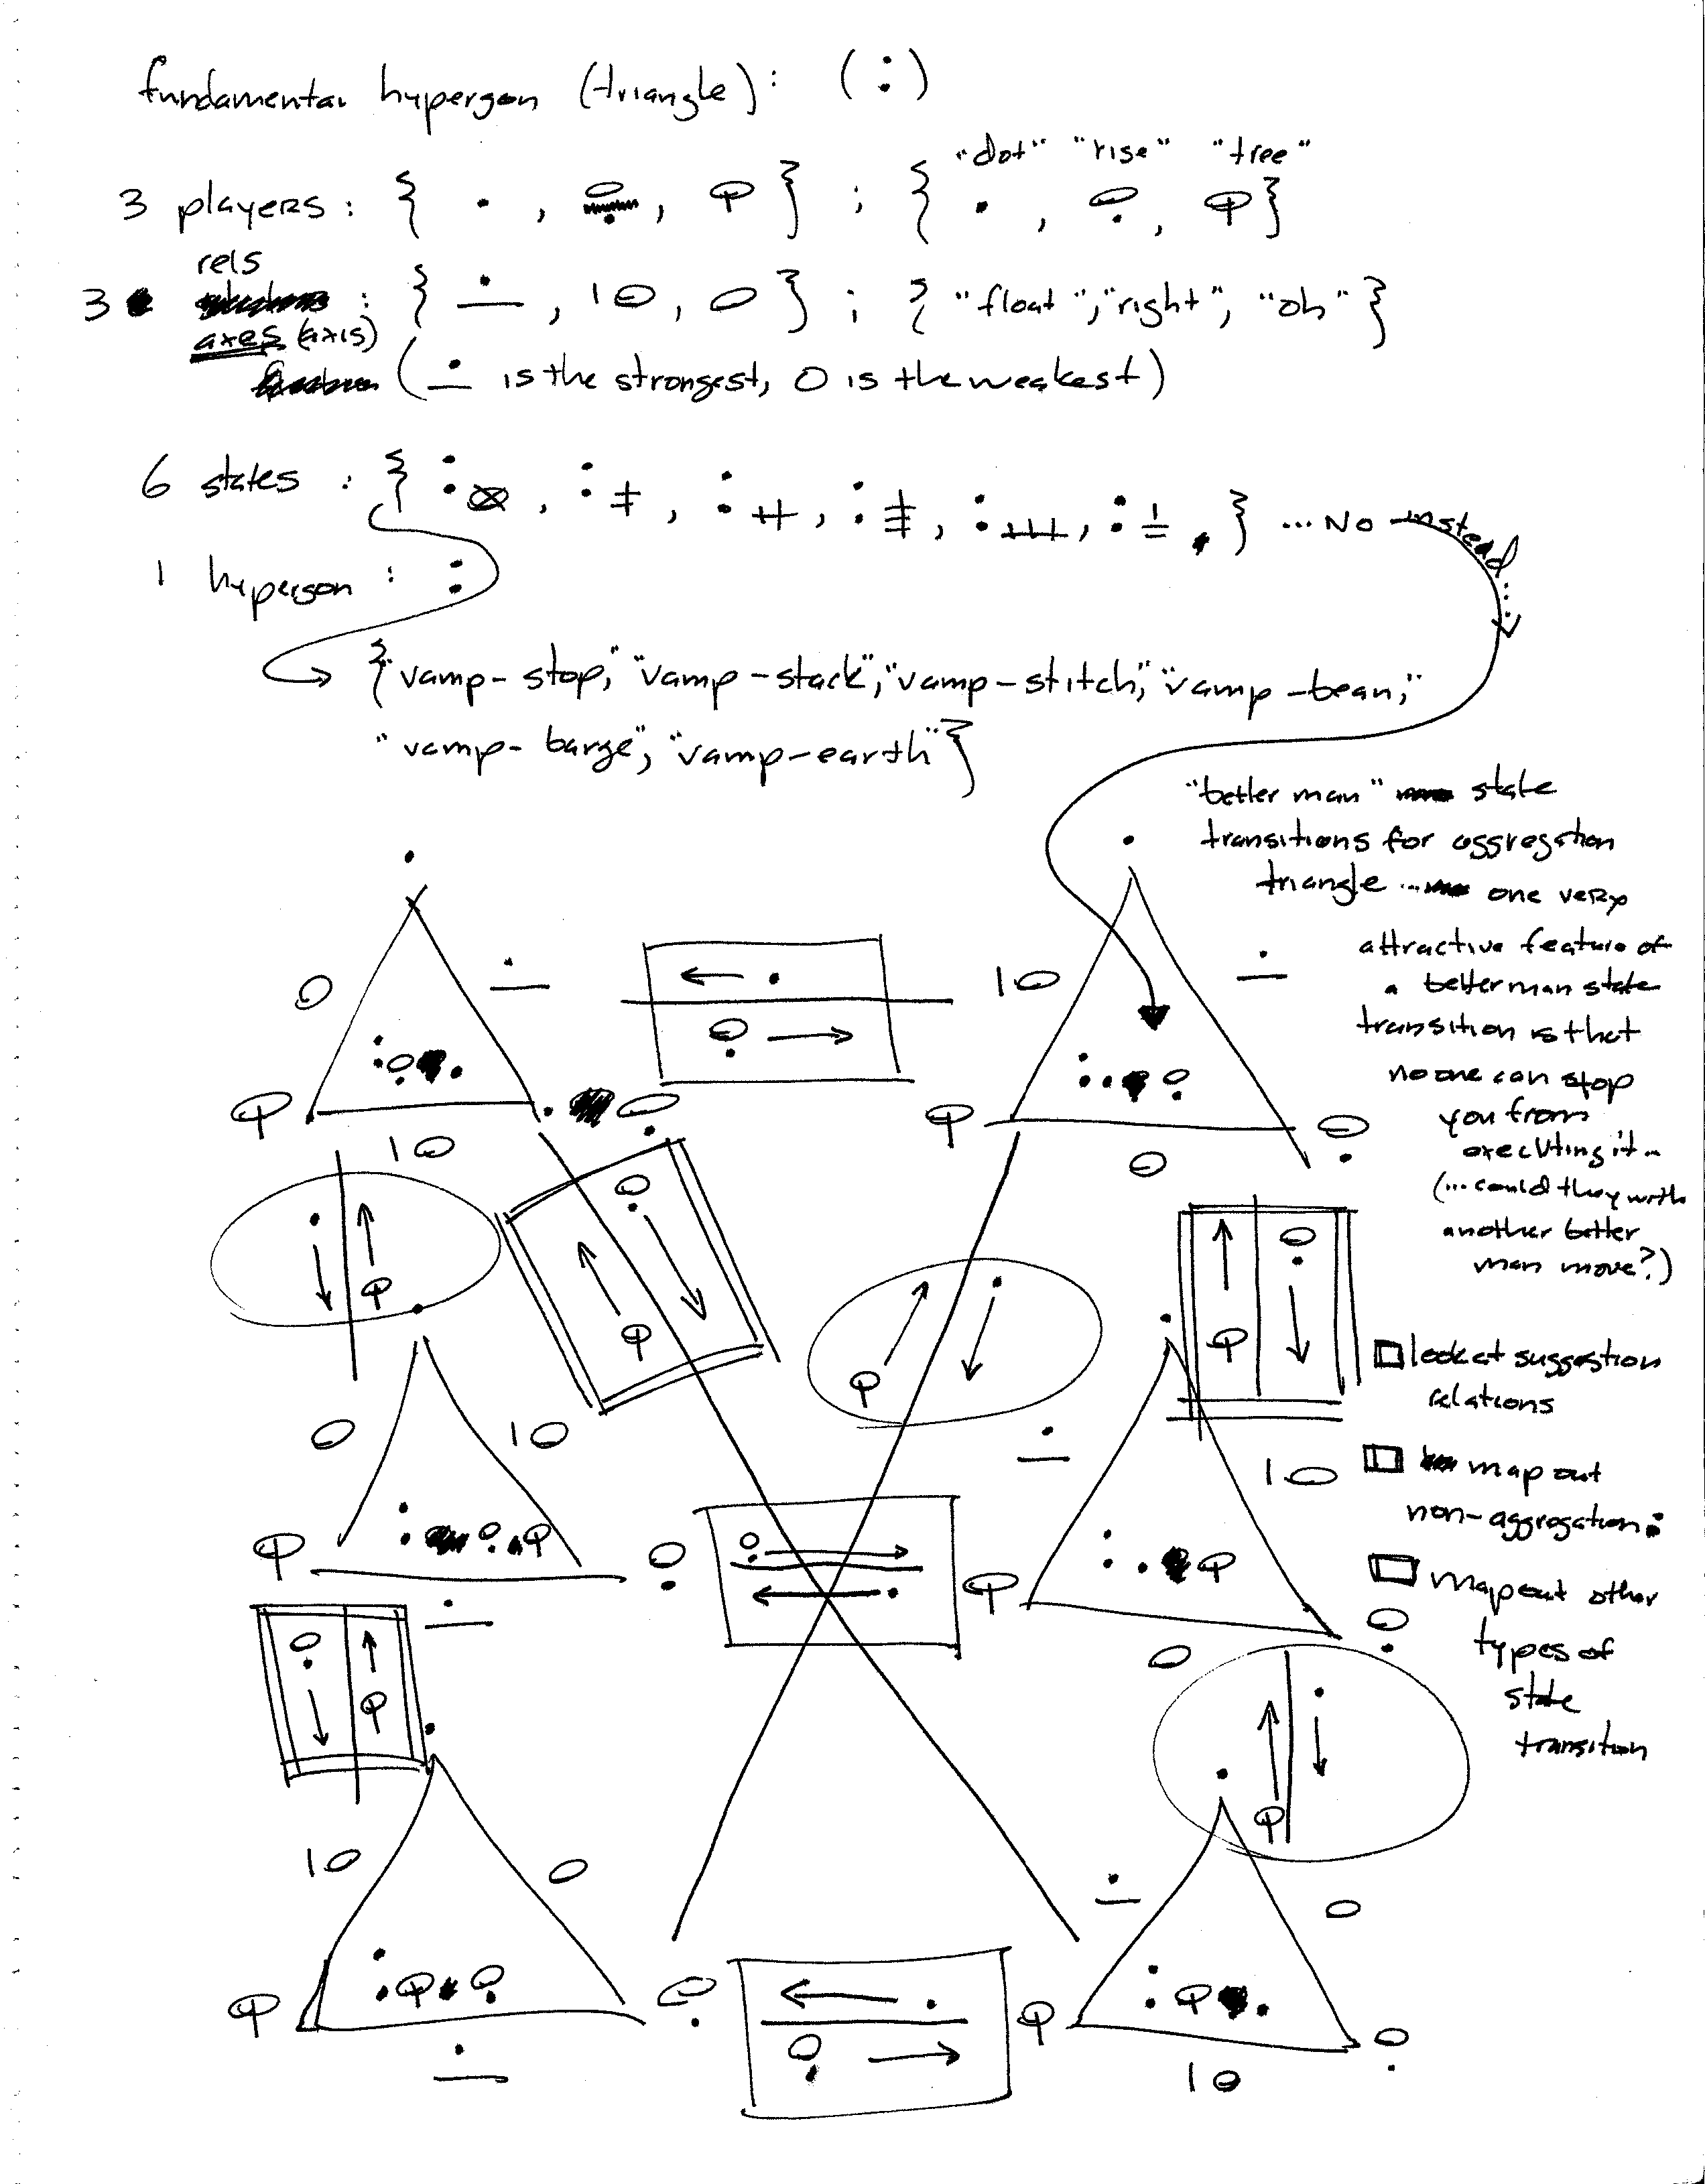 fundamental hypergon (triangle): ( : )
"dot" "rise" "tree"
3 players: { ·, , } ; { ·, , }
rels
3 : { , 10, 0 } ; { "float", "right", "oh" }
axes (axis)
( is the strongest, 0 is the weakest)
6 states : { : , : ‡ , : , : , : , : } ... No instead ...
1 hypergon : :
{"vamp-stop," "vamp-stack", "vamp-stitch," "vamp-bean,"
"vamp-barge", "vamp-earth"}
"better man" state
transitions for aggregation
triangle ... one very
attractive feature of
a better man state
transition is that
no one can stop
you from
executing it..
(... could they with
another better
man move?)
0
10
10
0
0
10
10
0
10
0
0
10
□ look at suggestion
relations
□ map out
non-aggregation :
□ map out other
types of
state
transition